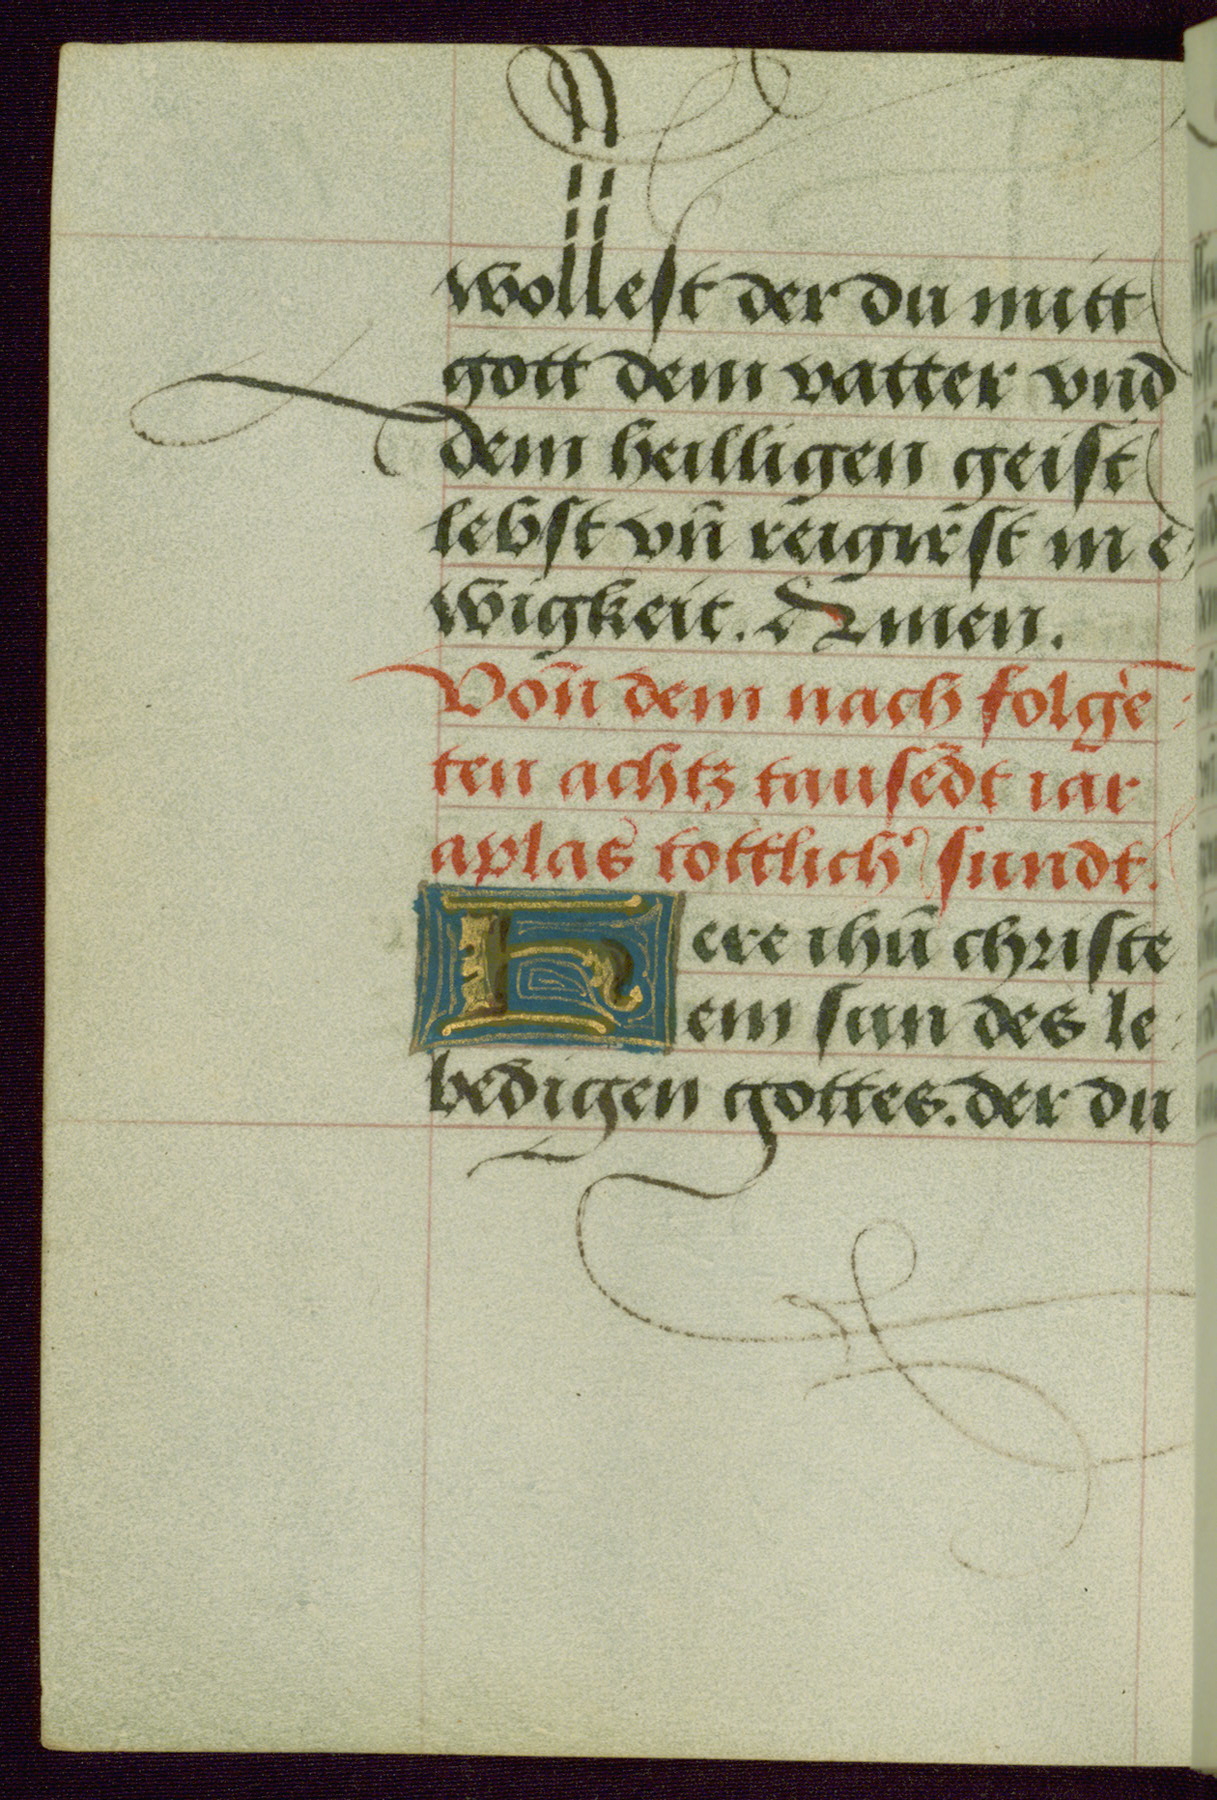 wollest der du mitt
gott dem vatter vnd
dem heilligen geist
lebst vn̄ reigirst in e
wigkeit. Amen.
Von̄ dem nach folgē
ten achtz tausēdt iar
aplas tottlich' sundt.
Here ihū christe
ein sun des le
bedigen gottes. der du